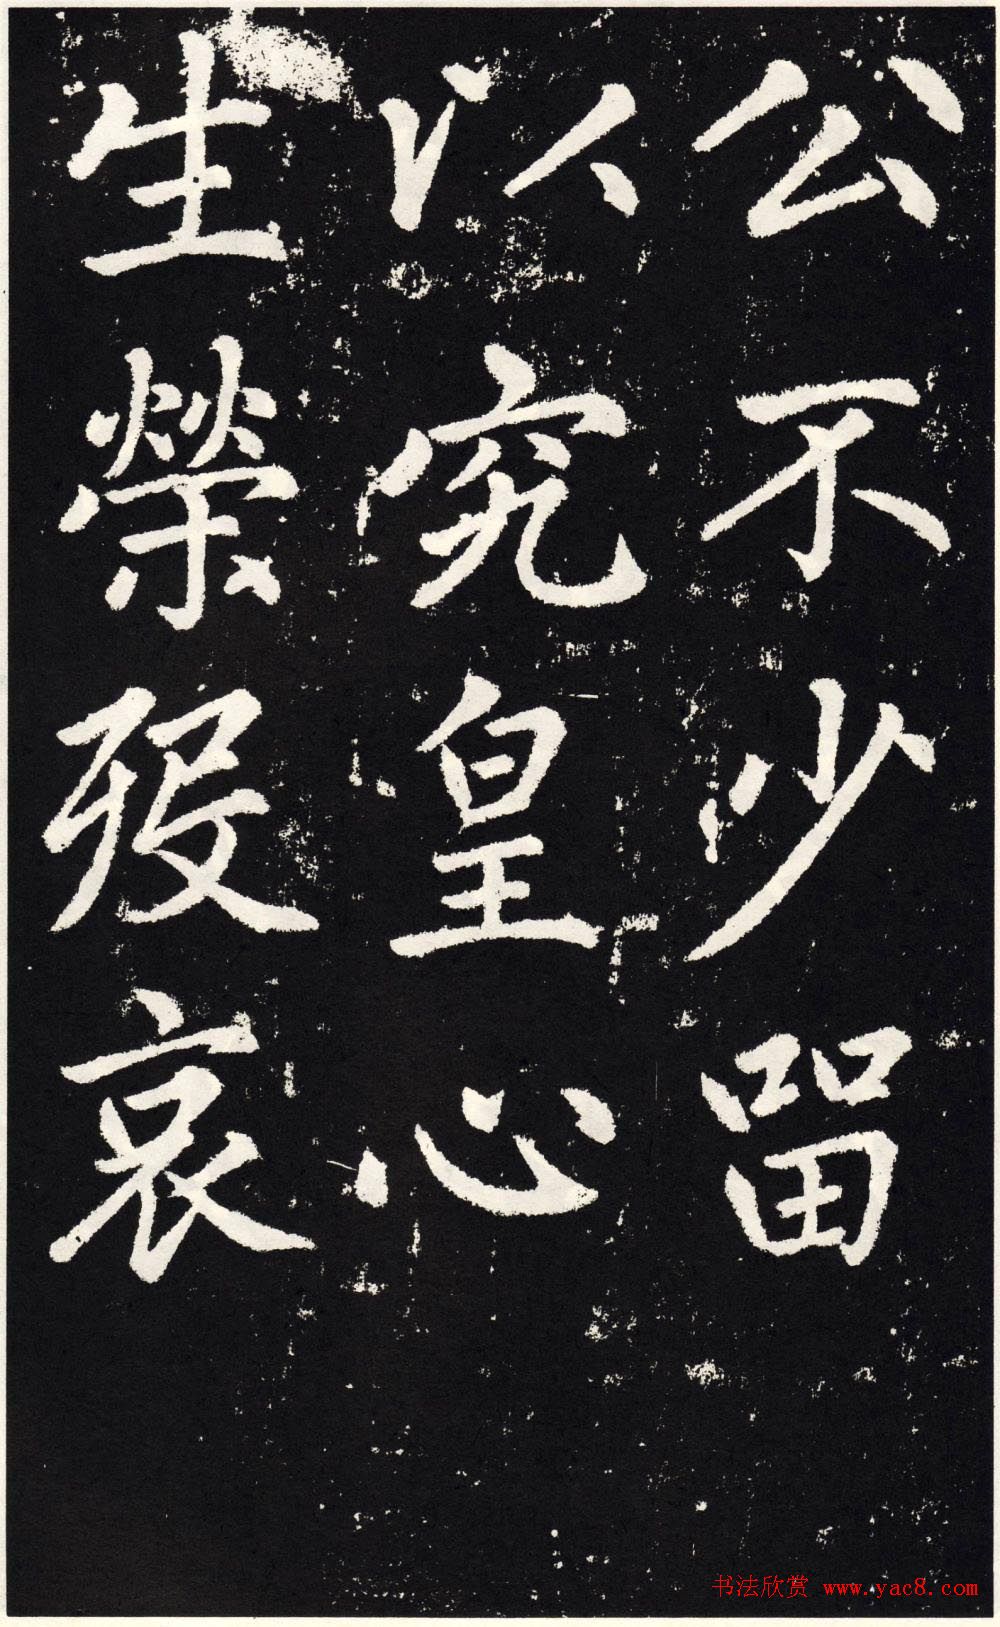 公不少留
以究皇心
生榮歿哀
书法欣赏 www.yac8.com